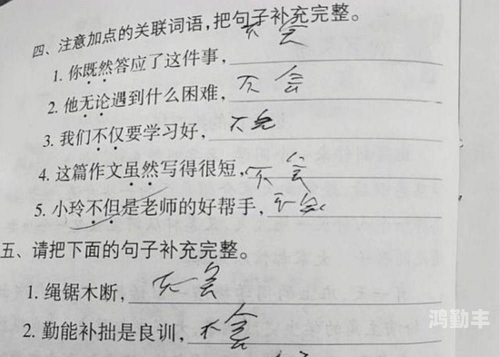 四、注意加点的关联词语,把句子补充完整。
1. 你既然答应了这件事,不会
2. 他无论遇到什么困难,不会
3. 我们不仅要学习好,不会
4. 这篇作文虽然写得很短,不会
5. 小玲不但是老师的好帮手,不会
五、请把下面的句子补充完整。
1. 绳锯木断,不会
2. 勤能补拙是良训,不会
鸿勤丰